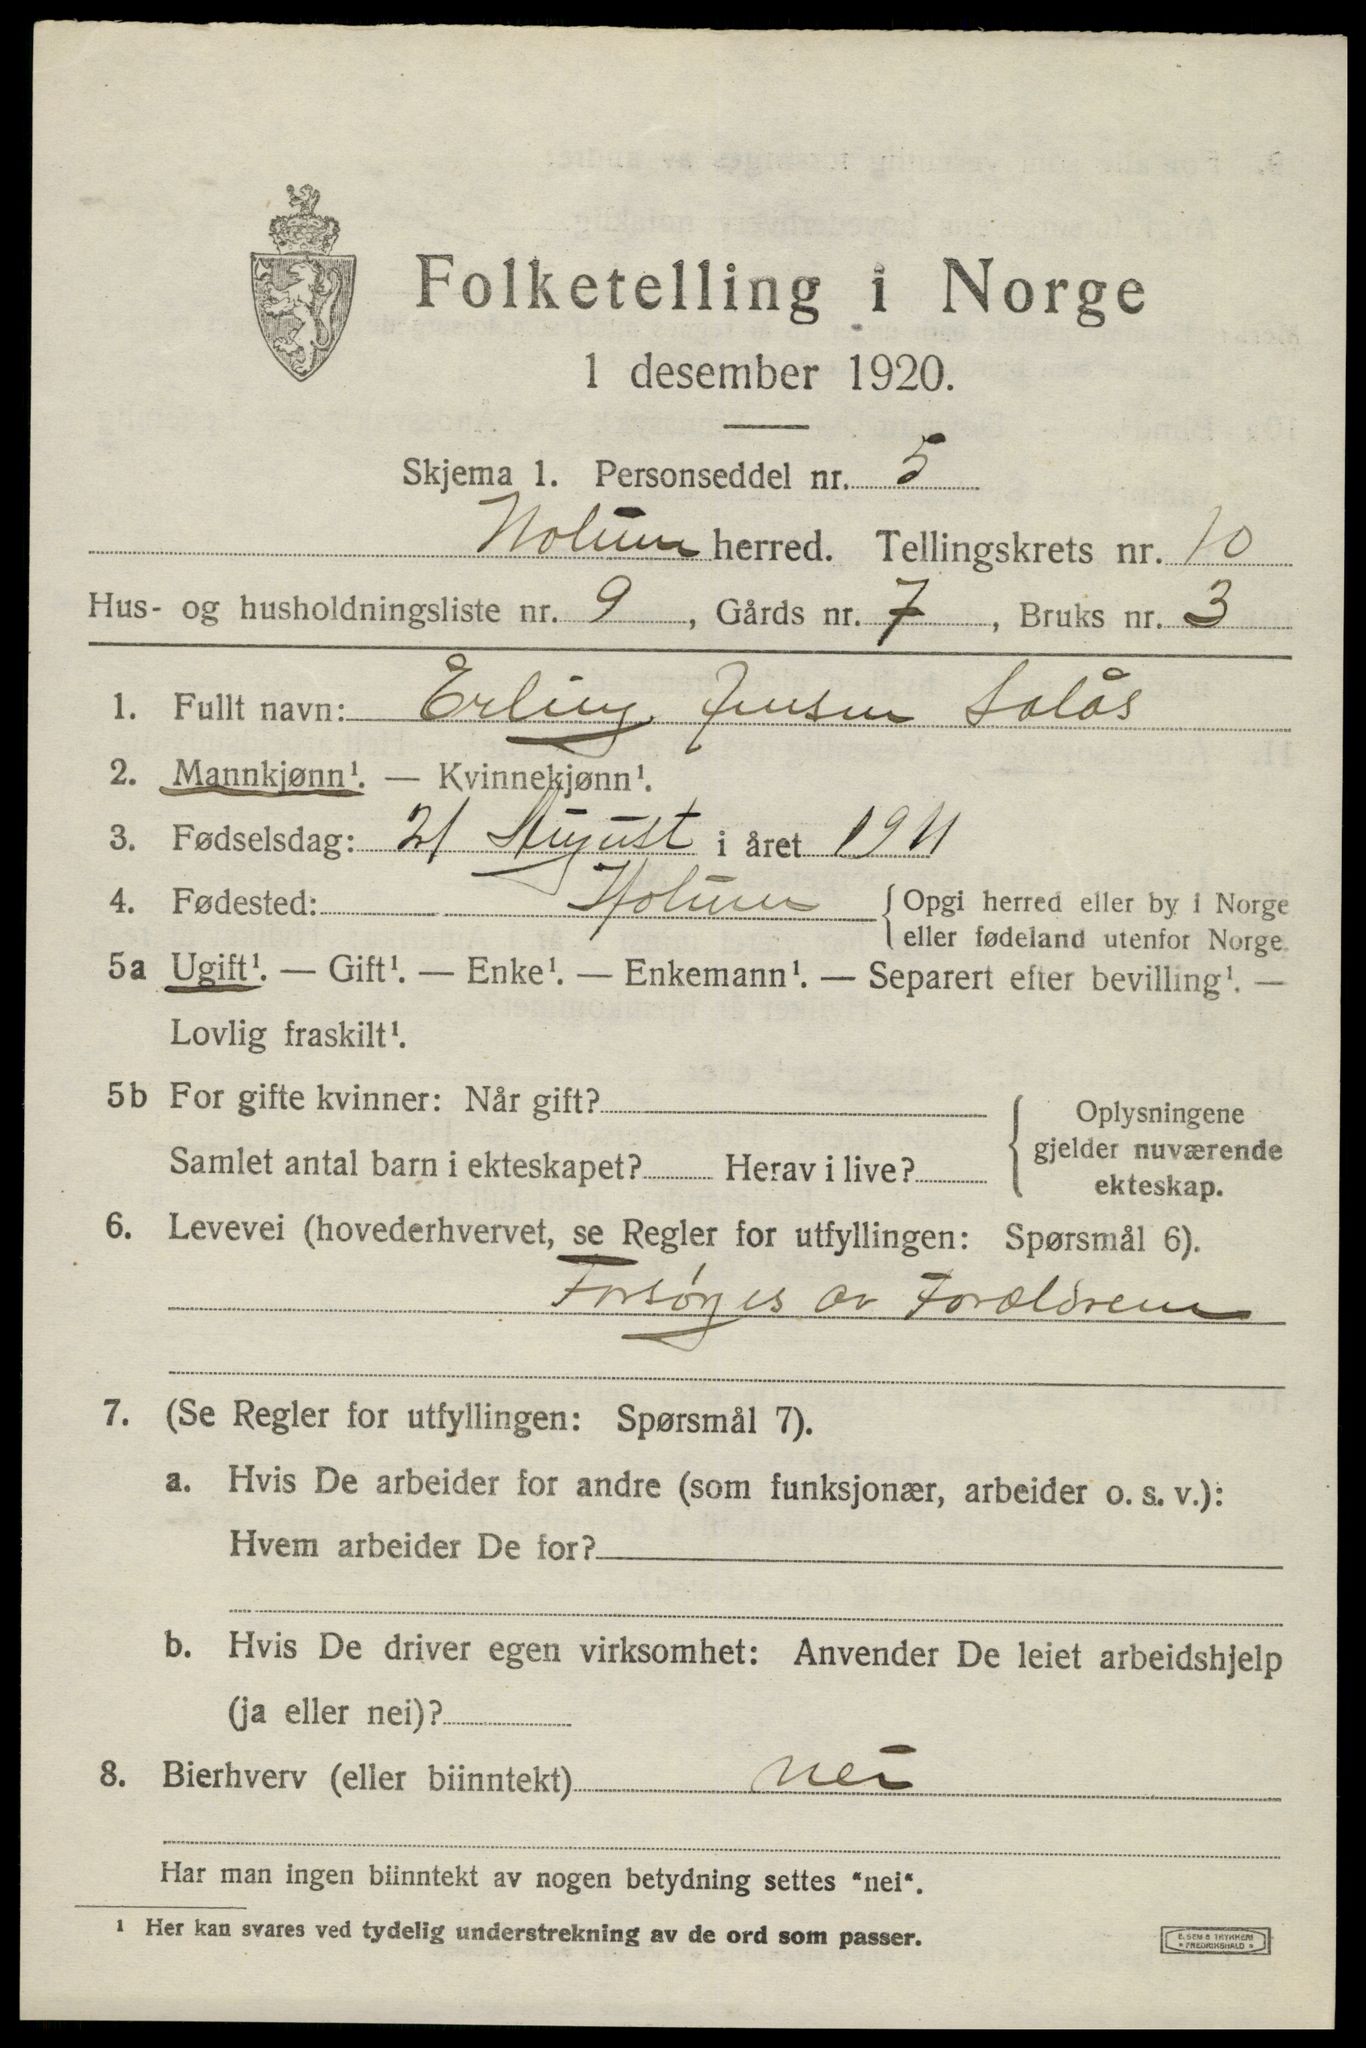 Folketelling i Norge
1 desember 1920.
Skjema 1. Personseddel nr. 5
Holum herred. Tellingskrets nr. 10
Hus- og husholdningsliste nr. 9, Gårds nr. 7, Bruks nr. 3
1. Fullt navn: Erling Jensen Solås
2. Mannkjønn¹. — Kvinnekjønn¹.
3. Fødselsdag: 21 August i året 1911
4. Fødested: Holum { Opgi herred eller by i Norge
eller fødeland utenfor Norge.
5a Ugift¹. — Gift¹. — Enke¹. — Enkemann¹. — Separert efter bevilling¹. —
Lovlig fraskilt¹.
5b For gifte kvinner: Når gift?
Samlet antal barn i ekteskapet? Herav i live?
{ Oplysningene
gjelder nuværende
ekteskap.
6. Levevei (hovederhvervet, se Regler for utfyllingen: Spørsmål 6).
Forsørges av Forældrene
7. (Se Regler for utfyllingen: Spørsmål 7).
a. Hvis De arbeider for andre (som funksjonær, arbeider o. s. v.):
Hvem arbeider De for?
b. Hvis De driver egen virksomhet: Anvender De leiet arbeidshjelp
(ja eller nei)?
8. Bierhverv (eller biinntekt) nei
Har man ingen biinntekt av nogen betydning settes "nei".
¹ Her kan svares ved tydelig understrekning av de ord som passer.
E. SEM'S TRYKKERI
FREDRIKSHALD